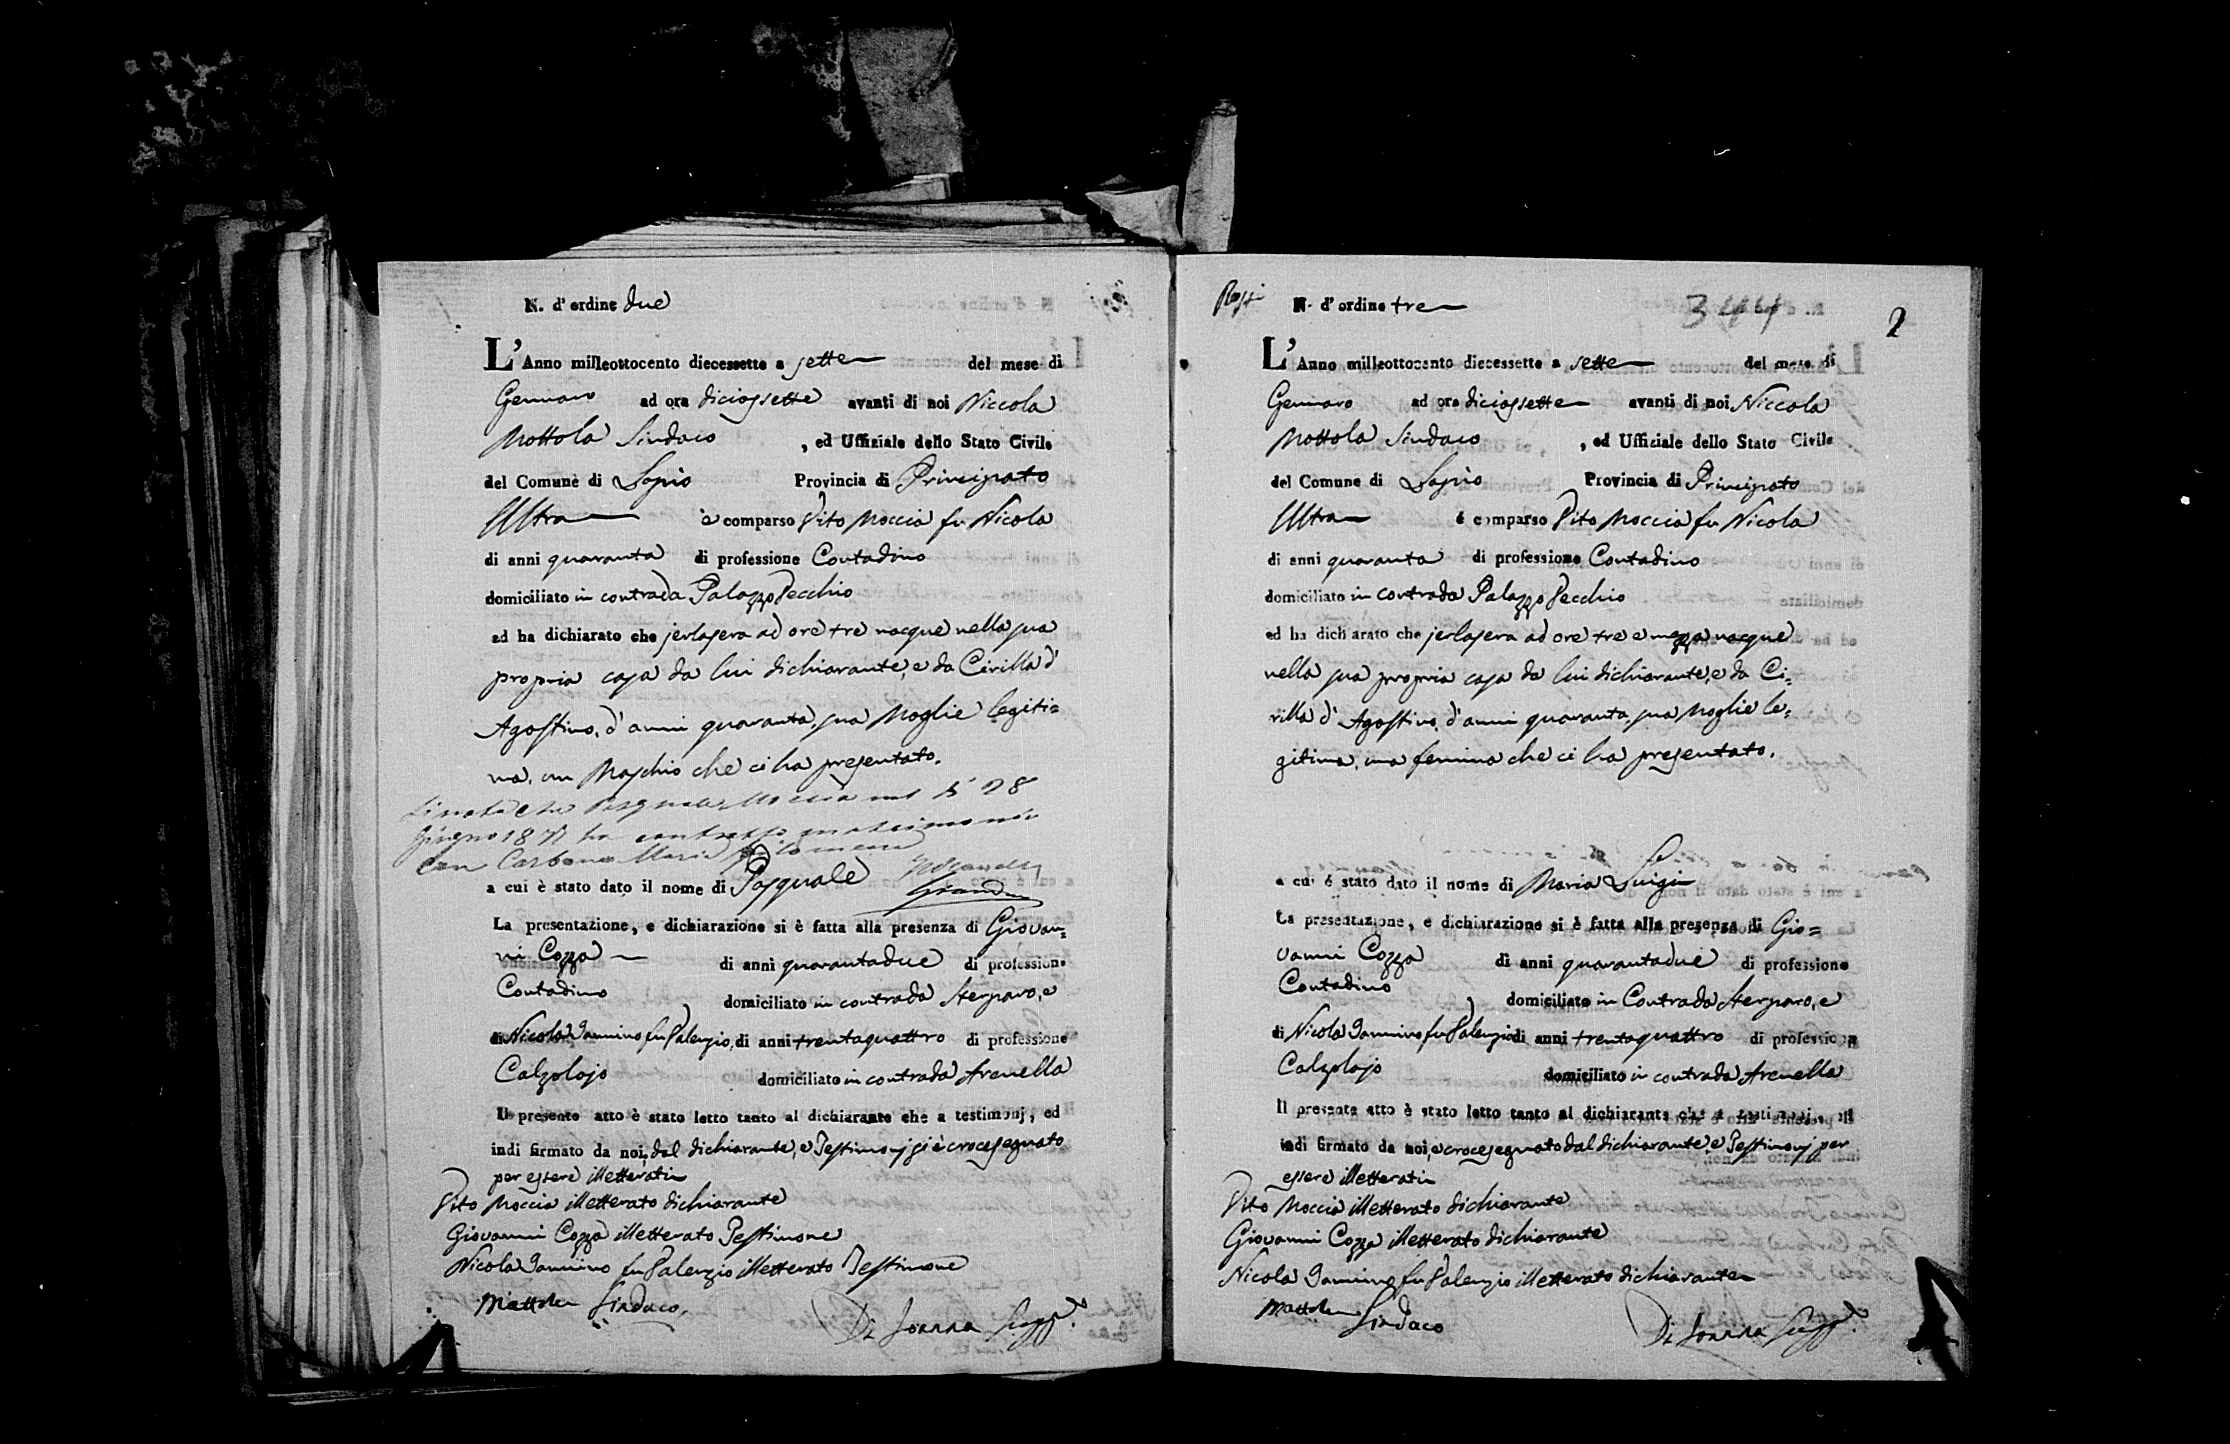 N. d' ordine due
L' Anno milleottocento diecessette a sette del mese di
Gennaro ad ora diciassette avanti di noi Niccola
Mottola Sindaco , ed Uffiziale dello Stato Civile
del Comune di Lapio Provincia di Principato
Ultra è comparso Vito Moccia fu Nicola
di anni quaranta di professione Contadino
domiciliato in contrada Palazzo Vecchio
ed ha dichiarato che jerlasera ad ore tre nacque nella sua
propria casa da lui dichiarante, e da Cirilla d'
Agostino, d' anni quaranta, sua Moglie legiti=
ma, un Maschio che ci ha presentato.
Si nota che Pasquale Moccia nel dì 28
Giugno 18 ha contratto matrimonio
con Carbone Maria Filomena
a cui è stato dato il nome di Pasquale
La presentazione, e dichiarazione si è fatta alla presenza di Giovan=
ni Cozza di anni quarantadue di professione
Contadino domiciliato in contrada Sterparo, e
di Nicola Iannino fu Valenzio, di anni trentaquattro di professione
Calzolajo domiciliato in contrada Arenella
Il presente atto è stato letto tanto al dichiarante che a testimonj, ed
indi firmato da noi, dal dichiarante, e Testimonj si è crocesegnato
per essere illetterati
Vito Moccia illetterato dichiarante
Giovanni Cozza illetterato Testimone
Nicola Iannino fu Valenzio illetterato Testimone
Mottola Sindaco
N. d' ordine tre
344
2
L' Anno milleottocento diecessette a sette del mese di
Gennaro ad ora diciassette avanti di noi Niccola
Mottola Sindaco , ed Uffiziale dello Stato Civile
del Comune di Lapio Provincia di Principato
Ultra è comparso Vito Moccia fu Nicola
di anni quaranta di professione Contadino
domiciliato in contrada Palazzo Vecchio
ed ha dichiarato che jerlasera ad ore tre e mezza nacque
nella sua propria casa da lui dichiarante, e da Ci=
rilla d' Agostino, d' anni quaranta, sua Moglie le=
gitima, una femina che ci ha presentato.
a cui è stato dato il nome di Maria Luigia
La presentazione, e dichiarazione si è fatta alla presenza di Gio=
vanni Cozza di anni quarantadue di professione
Contadino domiciliato in Contrada Sterparo, e
di Nicola Iannino fu Valenzio di anni trentaquattro di professione
Calzolajo domiciliato in contrada Arenella
Il presente atto è stato letto tanto al dichiarante che a testimonj, ed
indi firmato da noi, e crocesegnato dal dichiarante, e Testimonj per
essere illetterati
Vito Moccia illetterato dichiarante
Giovanni Cozza illetterato dichiarante
Nicola Iannino fu Valenzio illetterato dichiarante
Mottola Sindaco